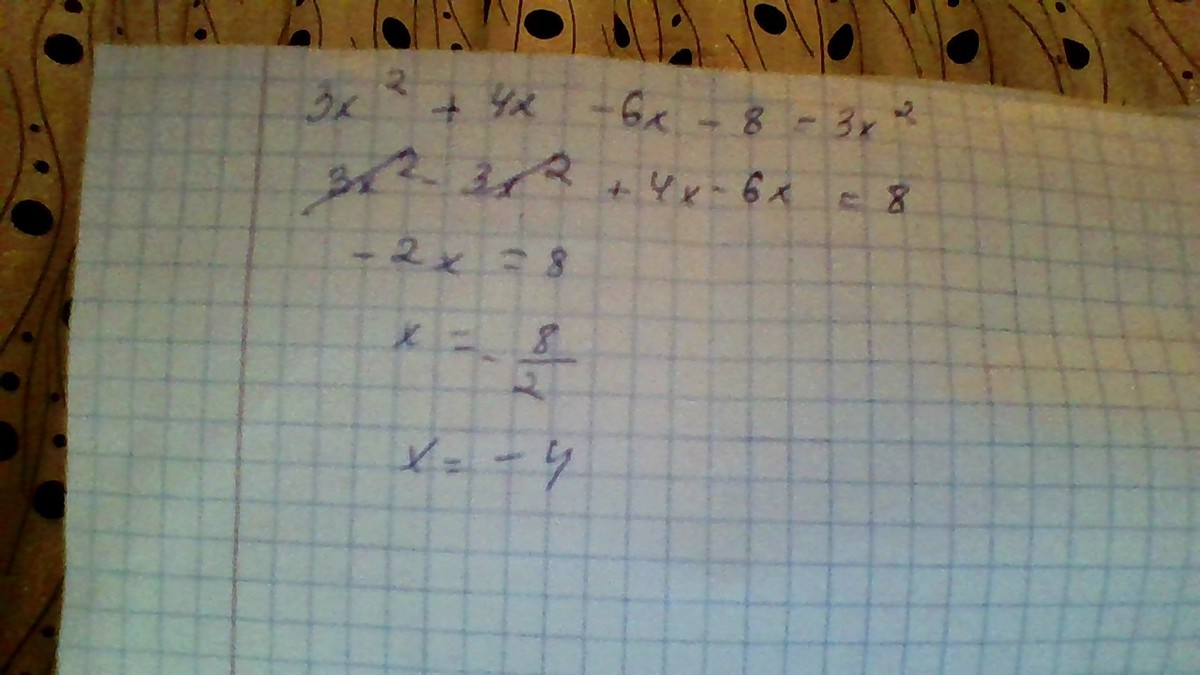 3x² + 4x - 6x - 8 = 3x²
3x² - 3x² + 4x - 6x = 8
-2x = 8
x = - 8/2
x = - 4